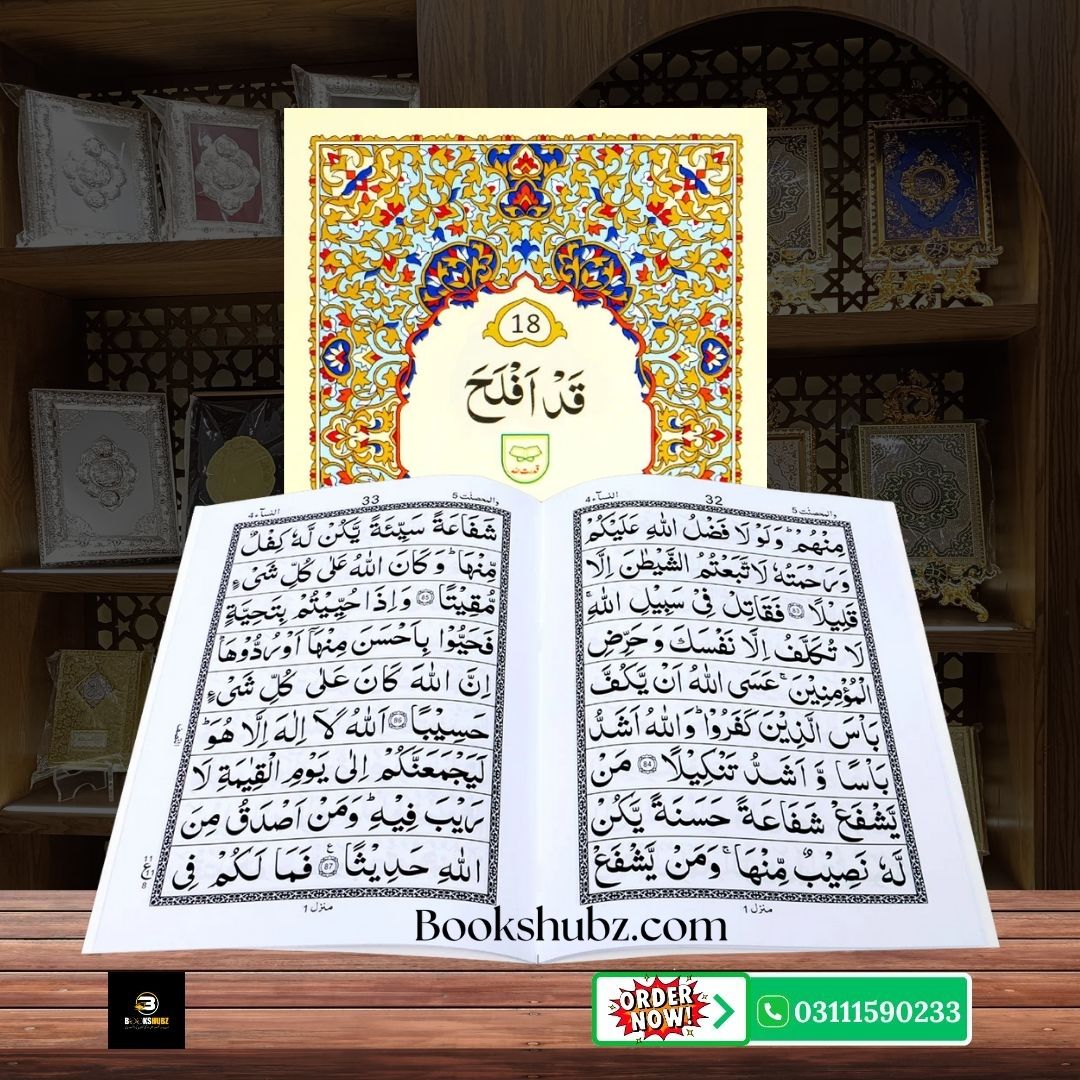 18
قَدْ اَفْلَحَ
قدرت اللہ
والمحصنٰت 5
32
النسآء 4
مِنْهُمْ ؕ وَلَوْ لَا فَضْلُ اللّٰهِ عَلَيْكُمْ
وَرَحْمَتُهٗ لَا تَّبَعْتُمُ الشَّيْطٰنَ اِلَّا
قَلِيْلًا 83 فَقَاتِلْ فِيْ سَبِيْلِ اللّٰهِ ۚ
لَا تُكَلَّفُ اِلَّا نَفْسَكَ وَ حَرِّضِ
الْمُؤْمِنِيْنَ ۚ عَسَى اللّٰهُ اَنْ يَّكُفَّ
بَاْسَ الَّذِيْنَ كَفَرُوْا ؕ وَاللّٰهُ اَشَدُّ
بَاْسًا وَّ اَشَدُّ تَنْكِيْلًا 84 مَنْ
يَّشْفَعْ شَفَاعَةً حَسَنَةً يَّكُنْ
لَّهٗ نَصِيْبٌ مِّنْهَا ۚ وَمَنْ يَّشْفَعْ
منزل 1
والمحصنٰت 5
33
النسآء 4
شَفَاعَةً سَيِّئَةً يَّكُنْ لَّهٗ كِفْلٌ
مِّنْهَا ؕ وَ كَانَ اللّٰهُ عَلٰى كُلِّ شَيْءٍ
مُّقِيْتًا 85 وَاِذَا حُيِّيْتُمْ بِتَحِيَّةٍ
فَحَيُّوْا بِاَحْسَنَ مِنْهَاۤ اَوْ رُدُّوْهَا
اِنَّ اللّٰهَ كَانَ عَلٰى كُلِّ شَيْءٍ
حَسِيْبًا 86 اَللّٰهُ لَاۤ اِلٰهَ اِلَّا هُوَ ؕ
لَيَجْمَعَنَّكُمْ اِلٰى يَوْمِ الْقِيٰمَةِ لَا
رَيْبَ فِيْهِ ؕ وَمَنْ اَصْدَقُ مِنَ
اللّٰهِ حَدِيْثًا 87 ع فَمَا لَكُمْ فِي
11
ع
11
8
منزل 1
Bookshubz.com
BOOKSHUBZ
ORDER
NOW!
03111590233